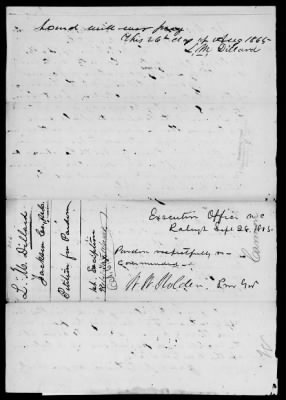 bound will ever pray
This 26th day of Aug 1865
L. M. Dillard
L. M. Dillard
Jackson
Petition for Pardon
1st Exception
Executive Office N C
Raleigh Sept 28, 1865.
Pardon respectfully re-
commended.
W W Holden, Prov Gov